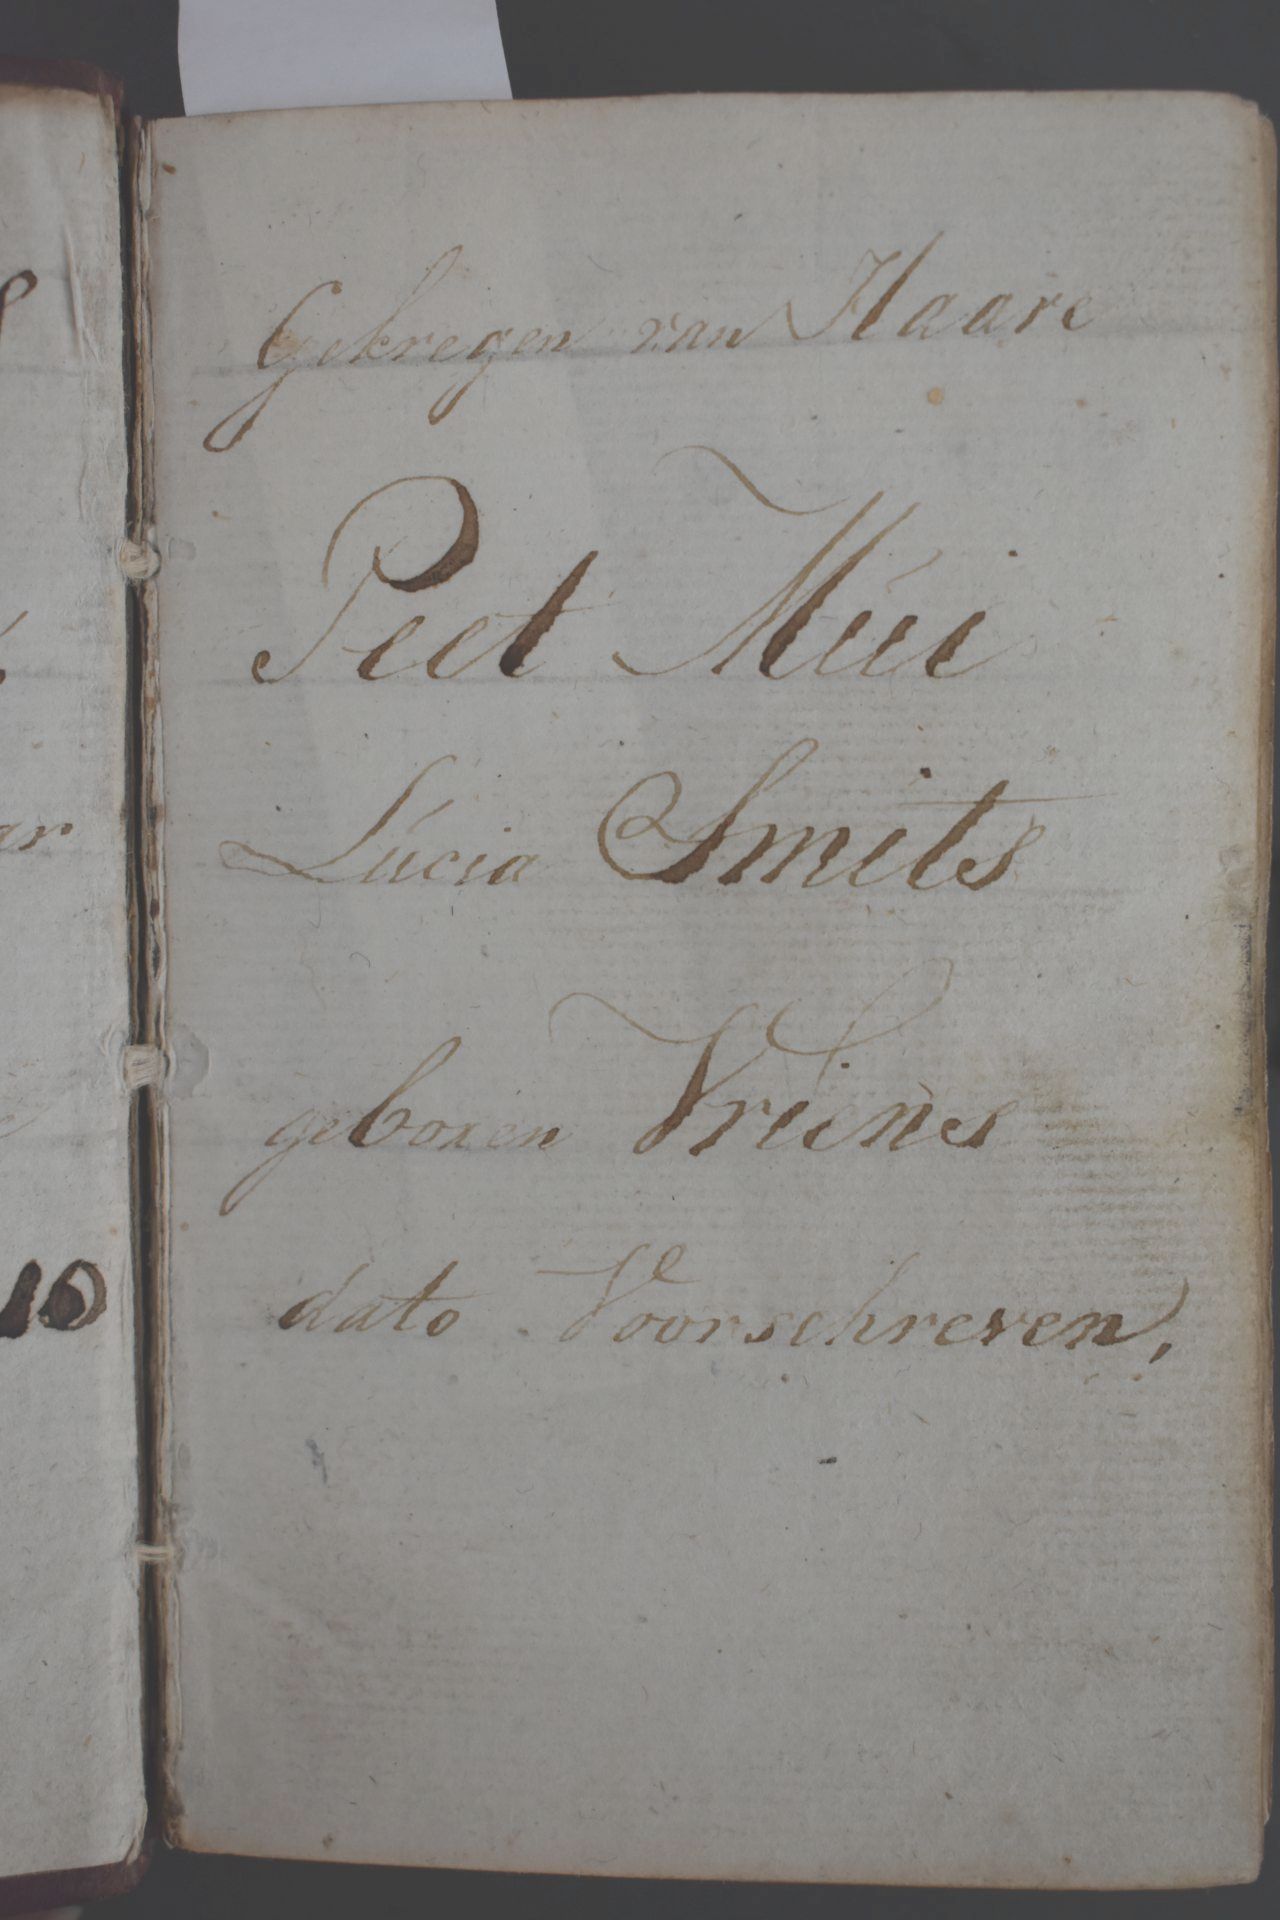 Gekregen van Haare
Peet Múi
Lúcia Smits
geboren Vriens
dato Voorschreven,
ar
10